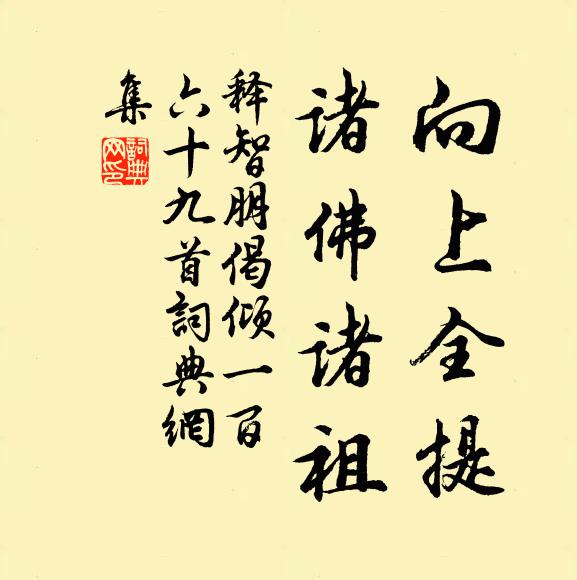 向上全提
诸佛诸祖
释智朋偈倾一百
六十九首詞典網
集
詞典
网印